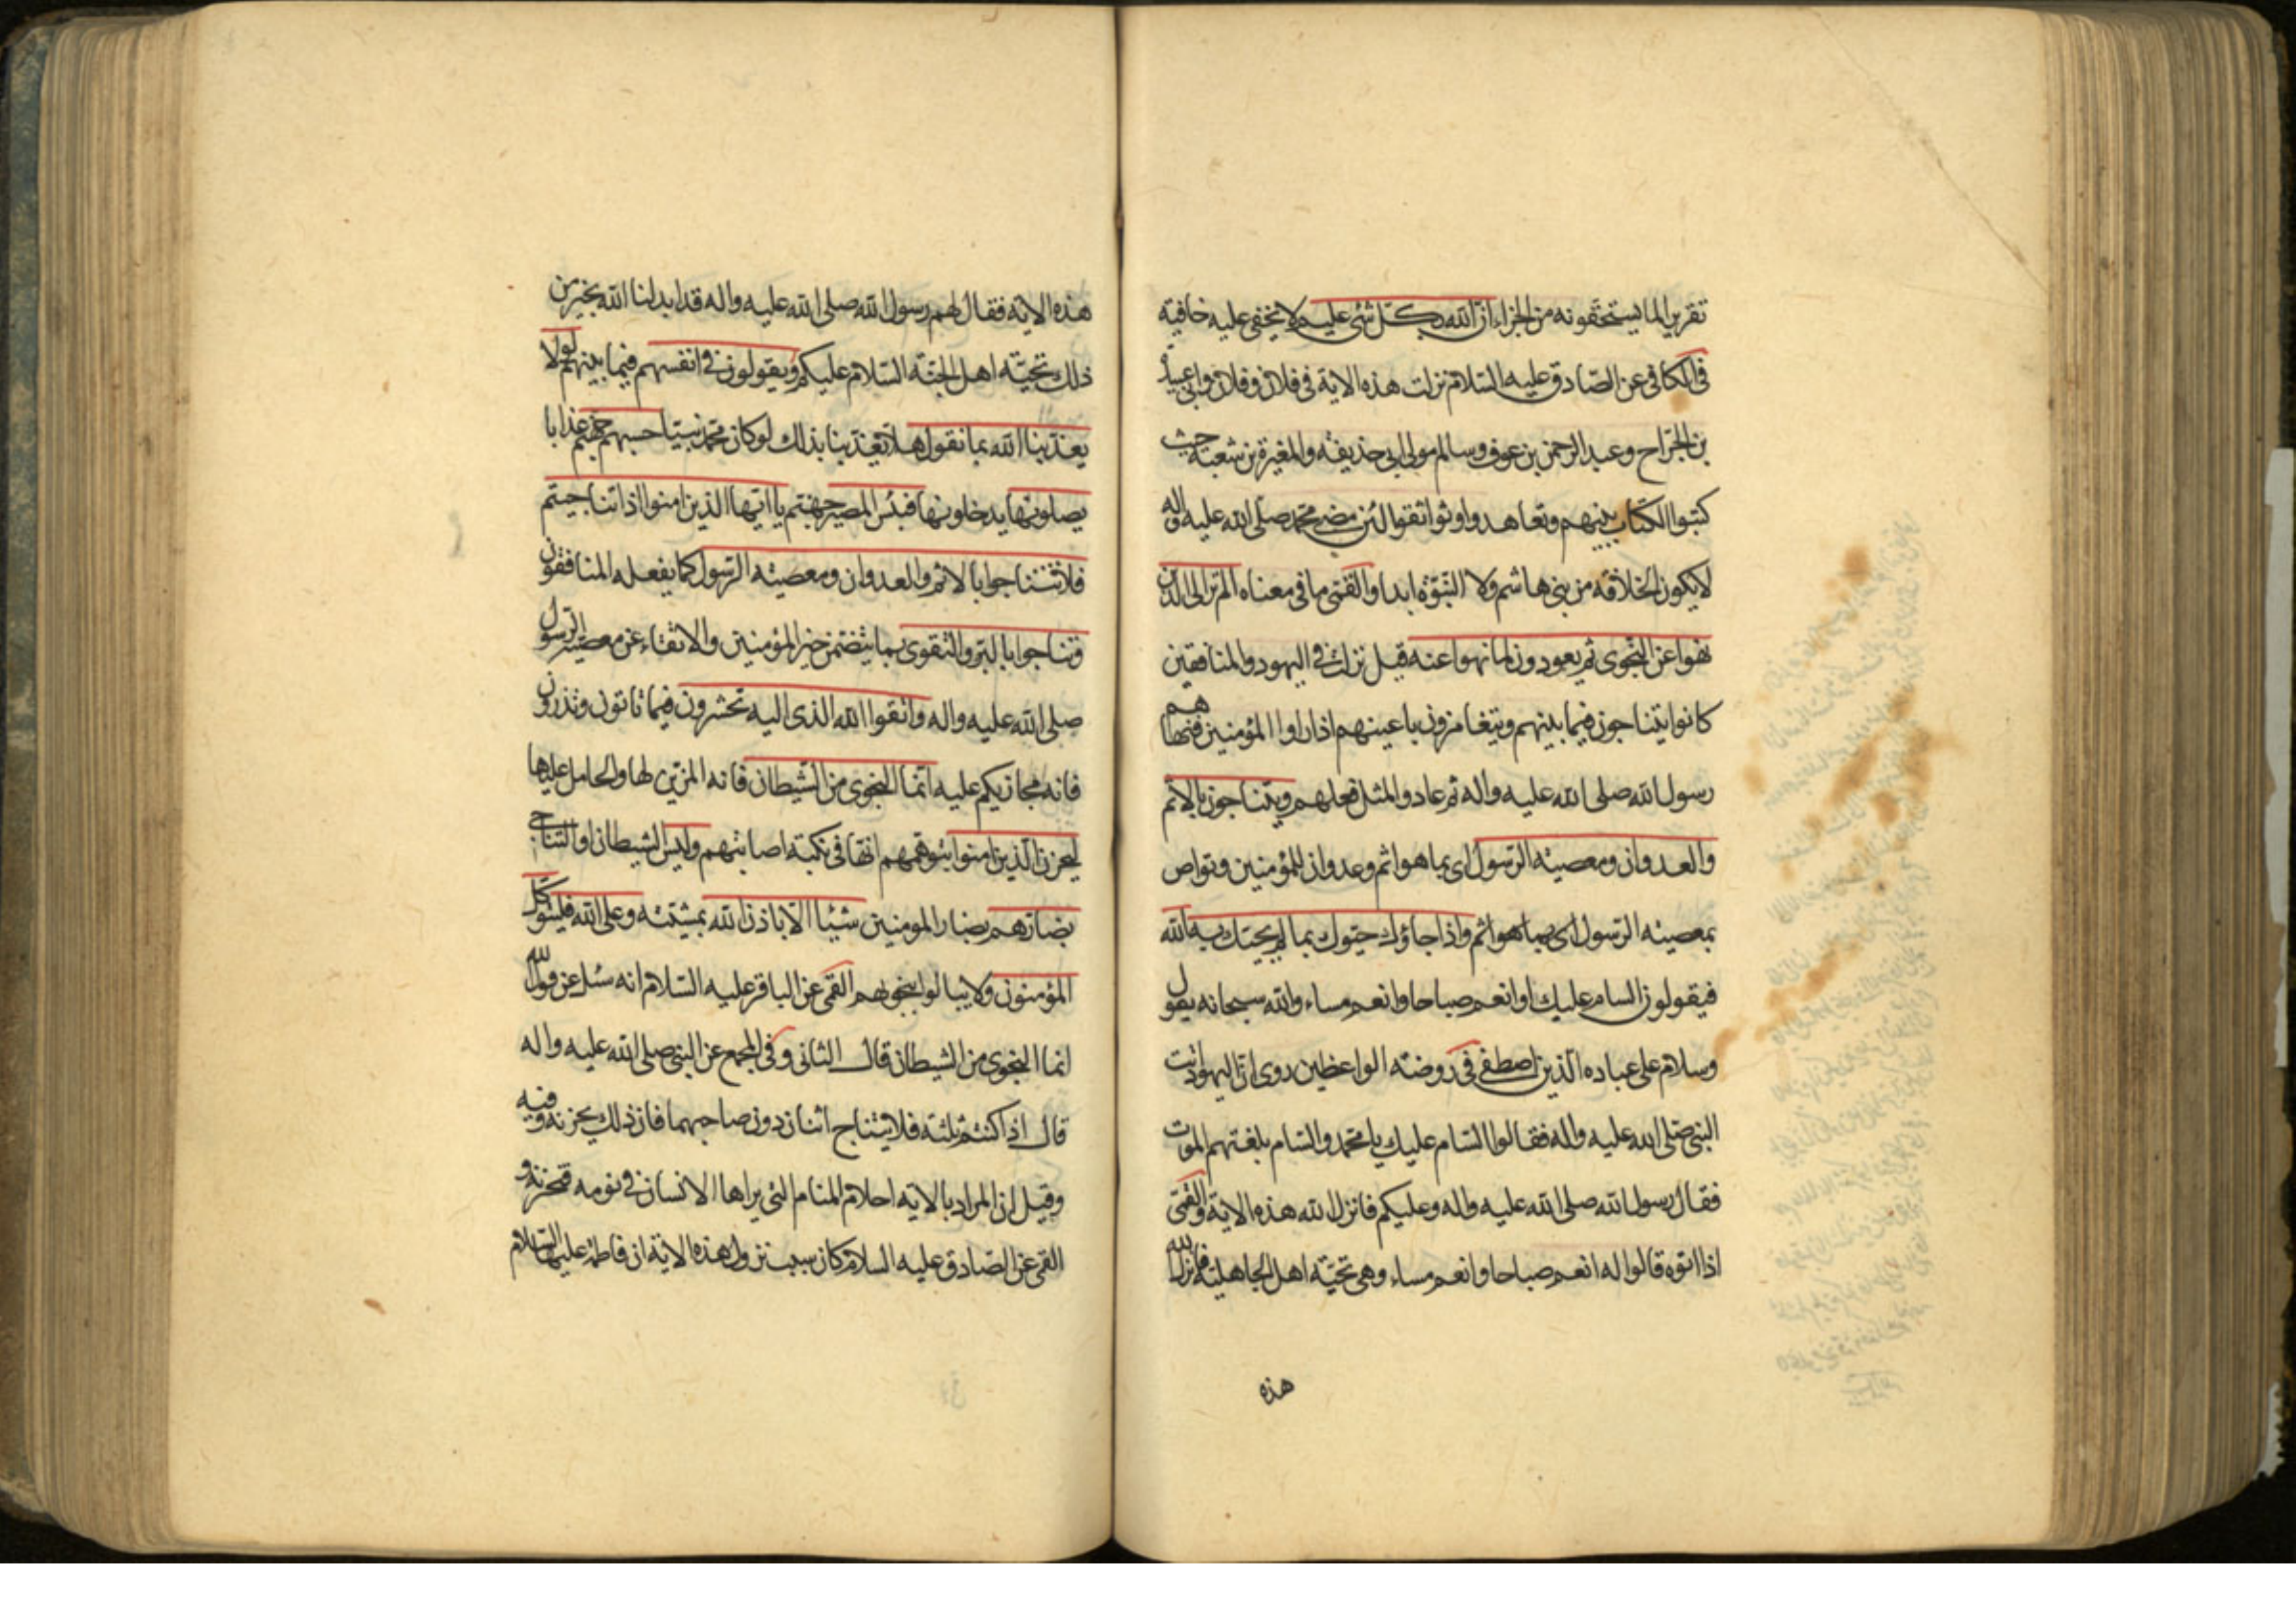 تقريرا لما يستحقونه من الجزاء ان الله بكل شئ عليم لا يخفى عليه خافية
في الكافي عن الصادق عليه السلام نزلت هذه الاية في فلان وفلان وابي عبيدة
بن الجراح وعبد الرحمن بن عوف وسالم مولى ابي حذيفة والمغيرة بن شعبة حيث
كتبوا الكتاب بينهم وتعاهدوا وتواثقوا لئن مضى محمد صلى الله عليه واله
لا يكون الخلافة من بني هاشم ولا النبوة ابدا والقمي ما في معناه الم تر الى الذين
نهوا عن النجوى ثم يعودون لما نهوا عنه قيل نزلت في اليهود والمنافقين
كانوا يتناجون فيما بينهم ويتغامزون باعينهم اذا راوا المؤمنين فنهاهم
رسول الله صلى الله عليه واله ثم عادوا لمثل فعلهم ويتناجون بالاثم
والعدوان ومعصيته الرسول اي بما هو اثم وعدوان للمؤمنين وتواص
بمعصيته الرسول اي بما هو اثم واذا جاؤك حيوك بما لم يحيك به الله
فيقولون السام عليك او انعم صباحا وانعم مساء والله سبحانه يقول
وسلام على عباده الذين اصطفى في روضة الواعظين روى ان اليهود اتت
النبي صلى الله عليه واله فقالوا السام عليك يا محمد والسام بلغتهم الموت
فقال رسول الله صلى الله عليه واله وعليكم فانزل الله هذه الاية والقمي
اذا اتوه قالوا له انعم صباحا وانعم مساء وهي تحية اهل الجاهلية فانزل الله
هذه
هذه الاية فقال لهم رسول الله صلى الله عليه واله قد ابدلنا الله بخير من
ذلك تحية اهل الجنة السلام عليكم ويقولون في انفسهم فيما بينهم لولا
يعذبنا الله بما نقول هلا تعذبنا بذلك لو كان محمد نبيا حسبهم جهنم عذابا
يصلونها يدخلونها فبئس المصير جهنم يا ايها الذين امنوا اذا تناجيتم
فلا تتناجوا بالاثم والعدوان ومعصيته الرسول كما يفعله المنافقون
وتناجوا بالبر والتقوى بما يتضمن خير المؤمنين والاتقاء عن معصية الرسول
صلى الله عليه واله واتقوا الله الذي اليه تحشرون فيما تاتون وتذرون
فانه مجازيكم عليه انما النجوى من الشيطان فانه المزين لها والحامل عليها
ليحزن الذين امنوا بتوهمهم انها في نكبة اصابتهم وليس الشيطان او التناجي
بضارهم بضار المومنين شيئا الا باذن الله بمشيته وعلى الله فليتوكل
المؤمنون ولا يبالوا بنجويهم القمي عن الباقر عليه السلام انه سئل عن قول الله
انما النجوى من الشيطان قال الثاني وفي المجمع عن النبي صلى الله عليه واله
قال اذا كنتم ثلثة فلا يتناج اثنان دون صاحبهما فان ذلك يحزنه وفيه
وقيل ان المراد بالاية احلام المنام التي يراها الانسان في نومه فتحزنه و
القمي عن الصادق عليه السلام كان سبب نزول هذه الاية ان فاطمة عليها السلام